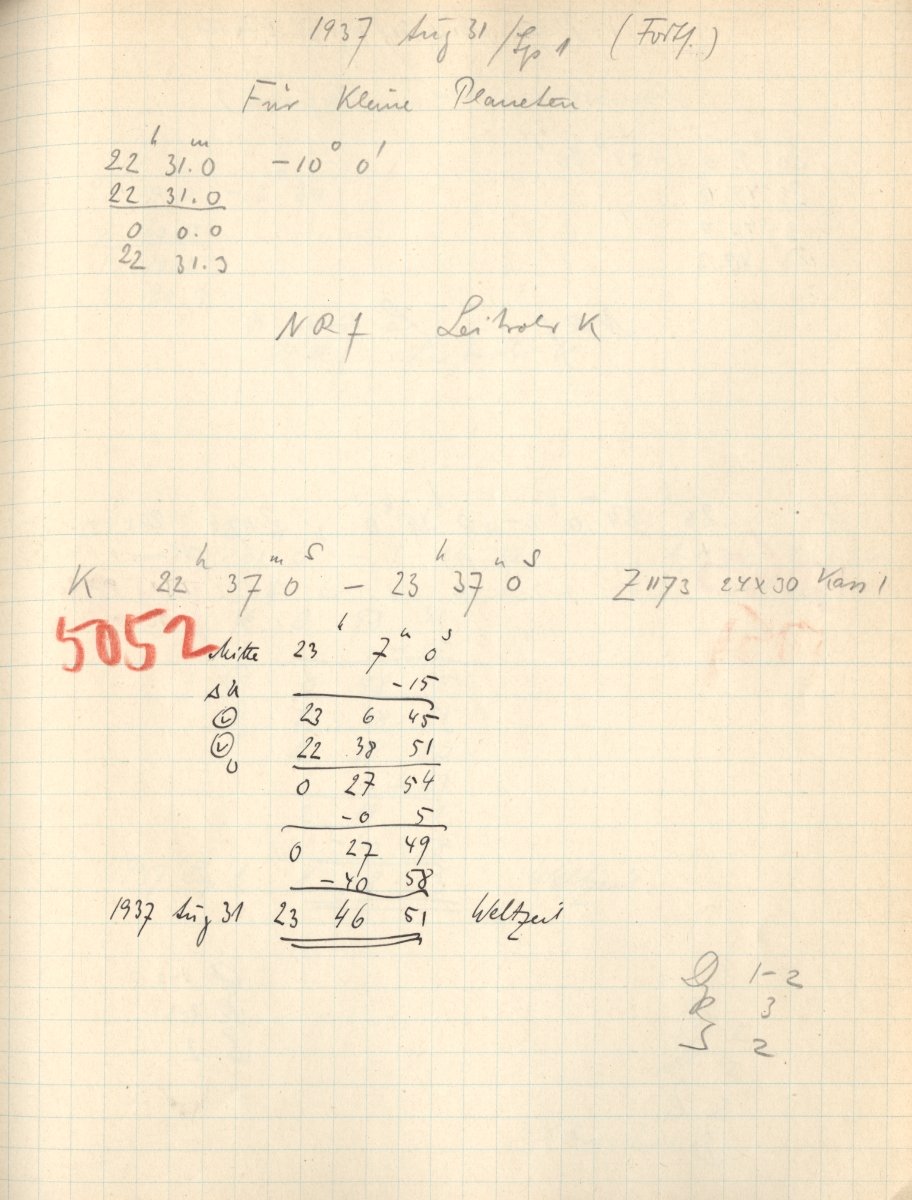 1937 Aug 31/Sp 1 (Forts.)
Für Kleine Planeten
22h 31.0m -10° 0'
22 31.0
0 0.0
22 31.0
NR f Leitrohr K
K 22h 37m 0s – 23h 37m 0s Z 1173 24x30 Kass 1
5052
Mitte 23h 7m 0s
Δu -15
23 6 45
0 22 38 51
0 27 54
-0 5
0 27 49
-40 58
1937 Aug 31 23 46 51 Weltzeit
D 1-2
R 3
S 2